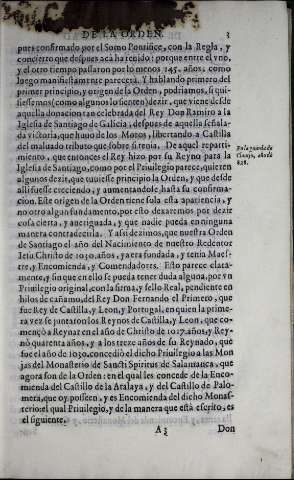 DE LA ORDEN. 3
pues confirmado por el Somo Pontifice, con la Regla, y
concierto que despues acà ha tenido: porque entre el vno,
y el otro tiempo passaron por lo menos 145. años, como
luego manifiestamente parecera. Y hablando primero del
primer principio, y origen de la Orden, podriamos, si qui-
siessemos (como algunos lo sienten) dezir, que viene desde
aquella donacion tan celebrada del Rey Don Ramiro a la
Iglesia de Santiago de Galicia, despues de aquella señala-
da victoria, que huuo de los Moros, libertando a Castilla
del maluado tributo que sobre si tenia. De aquel reparti-
miento, que entonces el Rey hizo por su Reyno para la
Iglesia de Santiago, como por el Priuilegio parece, quieren
algunos dezir, que tuuiesse principio la Orden, y que desde
alli fuesse creciendo, y aumentandose, hasta su confirma-
cion. Este origen de la Orden tiene sola esta apariencia, y
no otro algun fundamento, por esto dexaremos por dezir
cosa cierta, y aueriguada, y que nadie pueda en ninguna
manera contradezirla. Y assi dezimos, que nuestra Orden
de Santiago el año del Nacimiento de nuestro Redentor
Iesu Christo de 1030. años, ya era fundada, y tenia Maes-
tre, y Encomienda, y Comendadores. Esto parece clara-
mente, sin que en ello se pueda tener duda alguna, por vn
Priuilegio original, con la firma, y sello Real, pendiente en
hilos de cañamo, del Rey Don Fernando el Primero, que
fue Rey de Castilla, y Leon, y Portugal, en quien la prime-
ra vez se juntaron los Reynos de Castilla, y Leon, que co-
mençò a Reynar en el año de Christo de 1017. años, y Rey-
nò quarenta años, y a los treze años de su Reynado, que
fue el año de 1030. concediò el dicho Priuilegio a las Mon
jas del Monasterio de Sancti Spiritus de Salamanca, que
agora son de la Orden: en el qual les concede de la Enco-
mienda del Castillo de la Atalaya, y del Castillo de Palo-
mera, que oy posseen, y es Encomienda del dicho Monas-
terio: el qual Priuilegio, y de la manera que està escrito, es
el siguiente.
A 3 Don